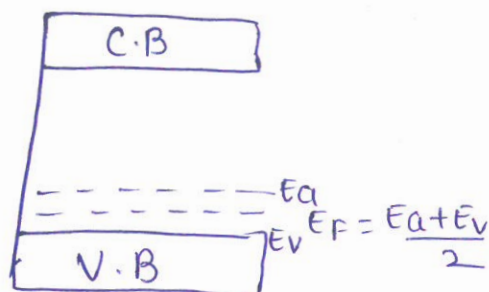 C.B
Ea
Ev EF = Ea+Ev/2
V.B